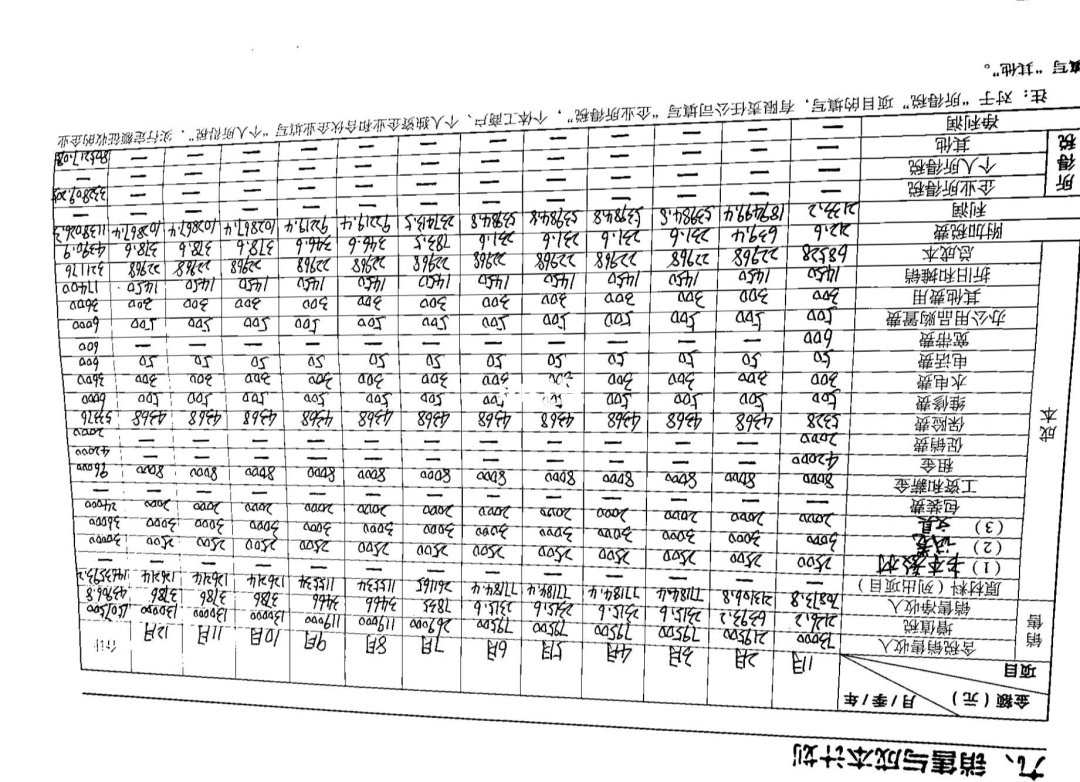 九、销售与成本计划
金额（元） 月/季/年
项目 1月 2月 3月 4月 5月 6月 7月 8月 9月 10月 11月 12月 合计
销售
含税销售收入 73000 219500 79500 79500 79500 79500 269000 119000 119000 130000 130000 130000 1507500
增值税 2126.2 6393.2 2315.6 2315.6 2315.6 2315.6 7835 3466 3466 3786 3786 3786 43906.8
销售净收入 70873.8 213106.8 77184.4 77184.4 77184.4 77184.4 261165 115534 115534 126214 126214 126214 1463593.2
成本
原材料（列出项目） — — — — — — — — — — — — —
（1）书本教材 2500 2500 2500 2500 2500 2500 2500 2500 2500 2500 2500 2500 30000
（2）试卷 3000 3000 3000 3000 3000 3000 3000 3000 3000 3000 3000 3000 36000
（3）文具 2000 2000 2000 2000 2000 2000 2000 2000 2000 2000 2000 2000 24000
包装费 — — — — — — — — — — — — —
工资和薪金 8000 8000 8000 8000 8000 8000 8000 8000 8000 8000 8000 8000 96000
租金 42000 — — — — — — — — — — — 42000
促销费 2000 — — — — — — — — — — — 2000
保险费 5328 4368 4368 4368 4368 4368 4368 4368 4368 4368 4368 4368 53376
维修费 500 500 500 500 500 500 500 500 500 500 500 500 6000
水电费 300 300 300 300 300 300 300 300 300 300 300 300 3600
电话费 50 50 50 50 50 50 50 50 50 50 50 50 600
宽带费 600 — — — — — — — — — — — 600
办公用品购置费 500 500 500 500 500 500 500 500 500 500 500 500 6000
其他费用 300 300 300 300 300 300 300 300 300 300 300 300 3600
折旧和摊销 1450 1450 1450 1450 1450 1450 1450 1450 1450 1450 1450 1450 17400
总成本 68528 22968 22968 22968 22968 22968 22968 22968 22968 22968 22968 22968 321176
附加税费 212.6 639.4 231.6 231.6 231.6 231.6 783.5 346.6 346.6 378.6 378.6 378.6 4390.9
利润 2133.2 189499.4 53984.8 53984.8 53984.8 53984.8 237413.5 92219.4 92219.4 102867.4 102867.4 102867.4 1138026.3
所得税
企业所得税 — — — — — — — — — — — —
个人所得税 — — — — — — — — — — — — —
其他 — — — — — — — — — — — — —
净利润 — — — — — — — — — — — — 805217.08
注：对于“所得税”项目的填写，有限责任公司填写“企业所得税”，个体工商户、个人独资企业和合伙企业填写“个人所得税”，实行定额征收的企业
填写“其他”。